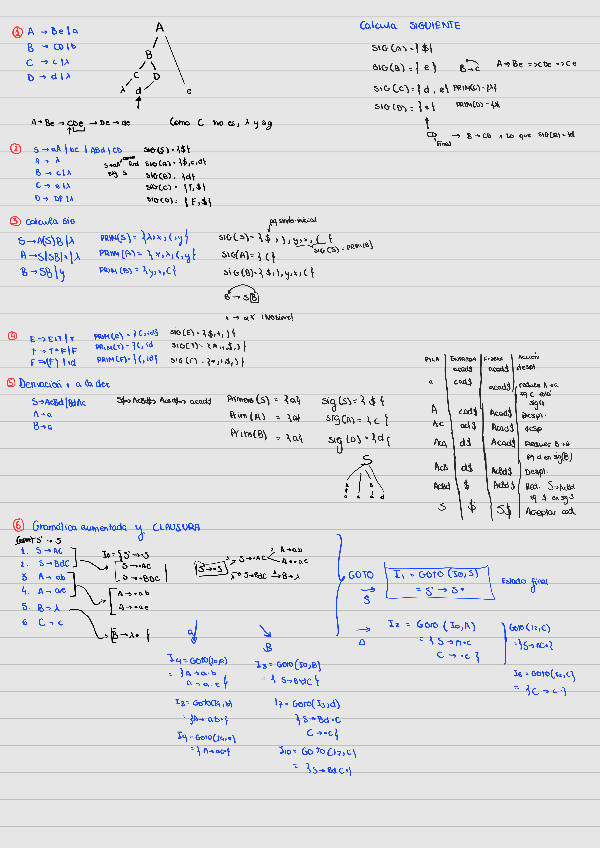 ① A → Be | a
B → CD | b
C → c | λ
D → d | λ
A
B
C D
λ d e
A → Be → CDe → De → de
Como C no es, λ y sig
Calcula SIGUIENTE
SIG(A) = { $ }
SIG(B) = { e }
B → c
A → Be => CDe => Ce
SIG(C) = { d, e }
SIG(D) = { e }
Final
② S → aA | bc | ABd | CD
A → λ
B → c | λ
C → e | λ
D → DF | λ
SIG(S) = { $ }
SIG(B) = { d }
SIG(C) = { F, $ }
SIG(D) = { F, $ }
③ Calcula SIG
S → A(S)B | λ
A → S | SB | x | λ
B → SB | y
PRIM(S) = { λ, x, (, y }
PRIM(A) = { x, λ, (, y }
SIG(S) = { $, ), y, x, ( }
SIG(A) = { ( }
SIG(B) = { $, ), y, x, ( }
B → SB
④ E → E+T | T
T → T*F | F
F → (E) | id
PRIM(E) = { (, id }
PRIM(T) = { (, id
PRIM(F) = { (, id }
SIG(E) = { $, +, ) }
⑤ Derivación + a la der
S → AcBd | BdAc
A → a
B → a
Primero(S) = { a }
Prim(A) = { a }
Prim(B) = { a }
Sig(S) = { $ }
Sig(A) = { c }
Sig(B) = { d }
S
PILA ENTRADA ACCIÓN
acad$ Despl.
a cad$
A cad$ Acad$ Despl.
Ac ad$ Acad$ Desp
Aca d$ Acad$ Reduce B → a
AcB d$ AcBd$ Despl.
AcBd $ AcBd$ Red. S → AcBd
S $ S$ Aceptar cad
⑥ Gramática aumentada y CLAUSURA
S' → S
1. S → AC
2. S → BdC
3. A → ab
4. A → ae
5. B → λ
6. C → c
I0 = { S' → ·S
S → ·AC
S → ·BDC
A → ·ab
A → ·ae
B → λ·
GOTO
S
I1 = GOTO (I0, S)
= S' → S·
Estado final
A
I2 = GOTO (I0, A)
= { S → A·C
C → ·c }
GOTO(I2, C)
= { S → AC· }
= { C → c· }
a
= { A → a·b
A → a·e }
= { A → ab· }
= { A → ae· }
B
I3 = GOTO(I0, B)
= { S → B·dC }
I7 = GOTO(I3, d)
{ S → Bd·C
C → ·c }
I10 = GOTO(I7, C)
= { S → BdC· }